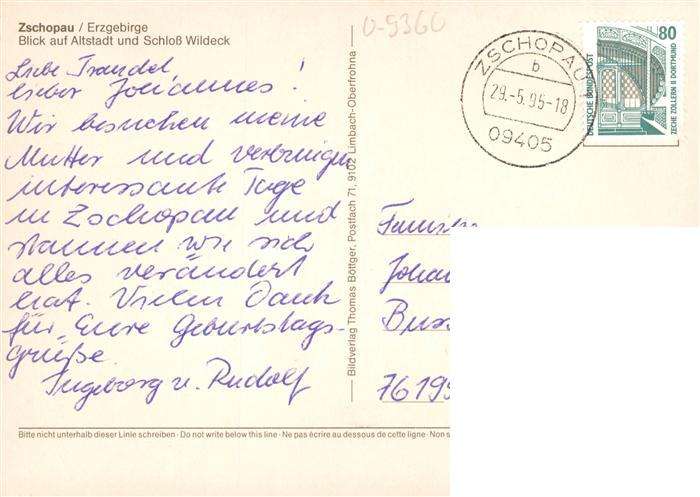 Zschopau / Erzgebirge
Blick auf Altstadt und Schloß Wildeck
Liebe Traudel,
lieber Johannes!
Wir besuchen meine
Mutter und verbringen
interessante Tage
in Zschopau und
staunen wie sich
alles verändert
hat. Vielen Dank
für Eure Geburtstags-
grüße.
Ingeborg u. Rudolf
Bitte nicht unterhalb dieser Linie schreiben · Do not write below this line · Ne pas écrire au dessous de cette ligne · Non s
Bildverlag Thomas Böttger, Postfach 71, 9102 Limbach-Oberfrohna
0-9360
ZSCHOPAU
b
29.-5.95-18
09405
80
DEUTSCHE BUNDESPOST
ZECHE ZOLLERN II DORTMUND
Johan
7619